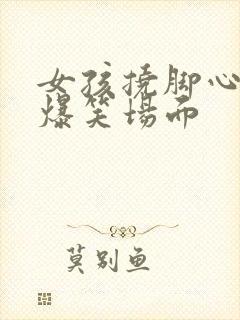 女孩挠脚心
爆笑场面
莫别鱼